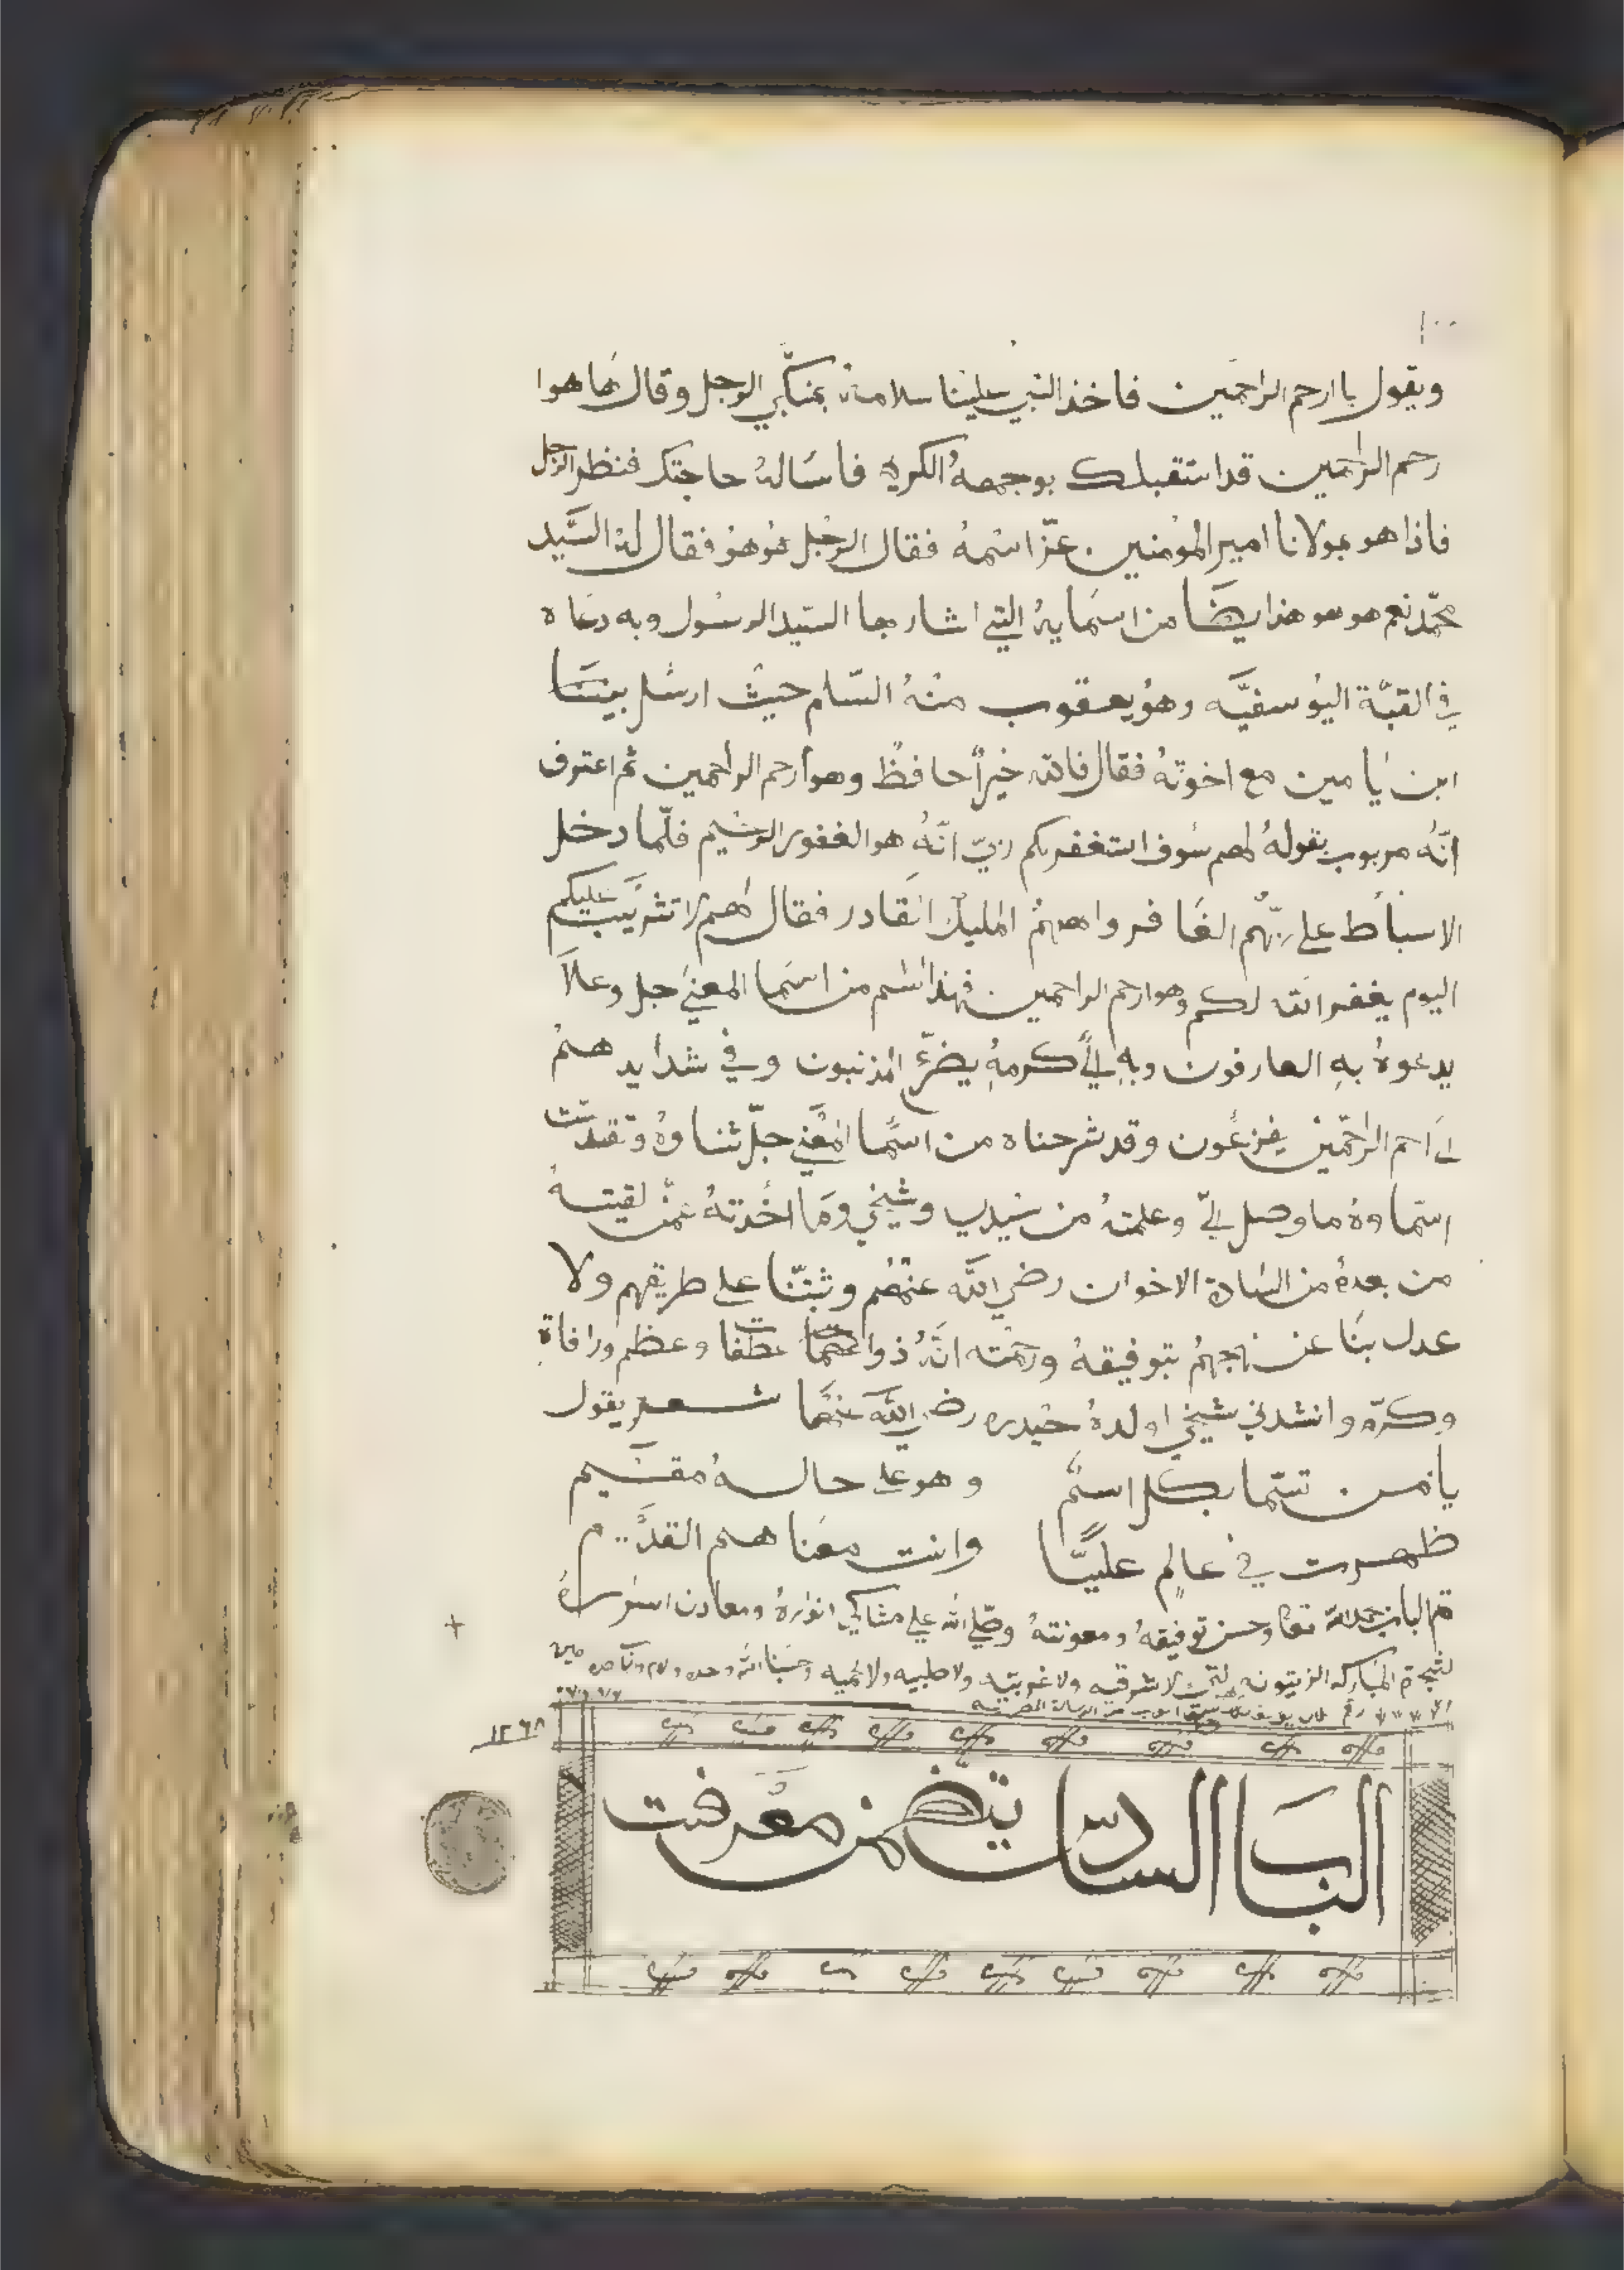 ١٠٠
ويقول ياارحم الراحمين فاخذ النبي علينا سلامه بمنكبي الرجل وقال ها هوا
رحم الراحمين قد استقبلك بوجهه الكريم فاساله حاجتك فنظر الرجل
فاذا هو بمولانا امير المؤمنين عزّ اسمه فقال الرجل هو هو فقال له السَّيد
محمّد نعم هو هو هذا يضًا من اسمايه التي اشار بها السيّد الرسول وبه دعاه
في القبّة اليوسفيَّه وهو يعقوب منه السّلام حيث ارسل بينَنَا
ابن يامين مع اخوته فقال فالله خيراً حافظً وهو ارحم الراحمين ثم اعترف
انّه مربوب بقوله لهم سوف استغفر لكم ربيّ انّه هو الغفور الرحيم فلّما دخل
الاسباط على ربّهم الغافر واههم المليك القادر فقال لهم لا تثريب عليكم
اليوم يغفر الله لكم وهو ارحم الراحمين فهذا اسم من اسما المعنى جل وعلا
يدعوه به العارفون وبه الي كرمه يضرّع المذنبون وفي شدايدهم
الى احم الراحمين يفزعون وقد شرحناه من اسما المعنى جلّ ثناوه وتقدّست
اسماوه ما وصل اليّ وعلمته من سيدي وشيخي وما اخذته عمّن لقيته
من بعده من السادة الاخوان رضي الله عنهم وثبتّنا على طريقهم ولا
عدل بنا عن نهجهم بتوفيقه ورحمته انّه ذوا عطفا وعظم ورافاة
وكرّم وانشدني شيخي اولده حيدره رضي الله عنهما شعر يقول
يا من تسّما بكل اسم وهو على حاله مقيم
ظهرت في عالم عليًّا وانت معنا هم القديم
تم الباب بحمد الله تعالى وحسن توفيقه ومعونته وصلّى الله على مشاكي انواره ومعادن اسراره
لشجرة المباركه الزيتونه التي لا شرقيه ولا غربيته ولا صلبيه ولا لحميه وحسبنا الله وحده
١٢٦٨
الباب السادس يتضمن معرفت